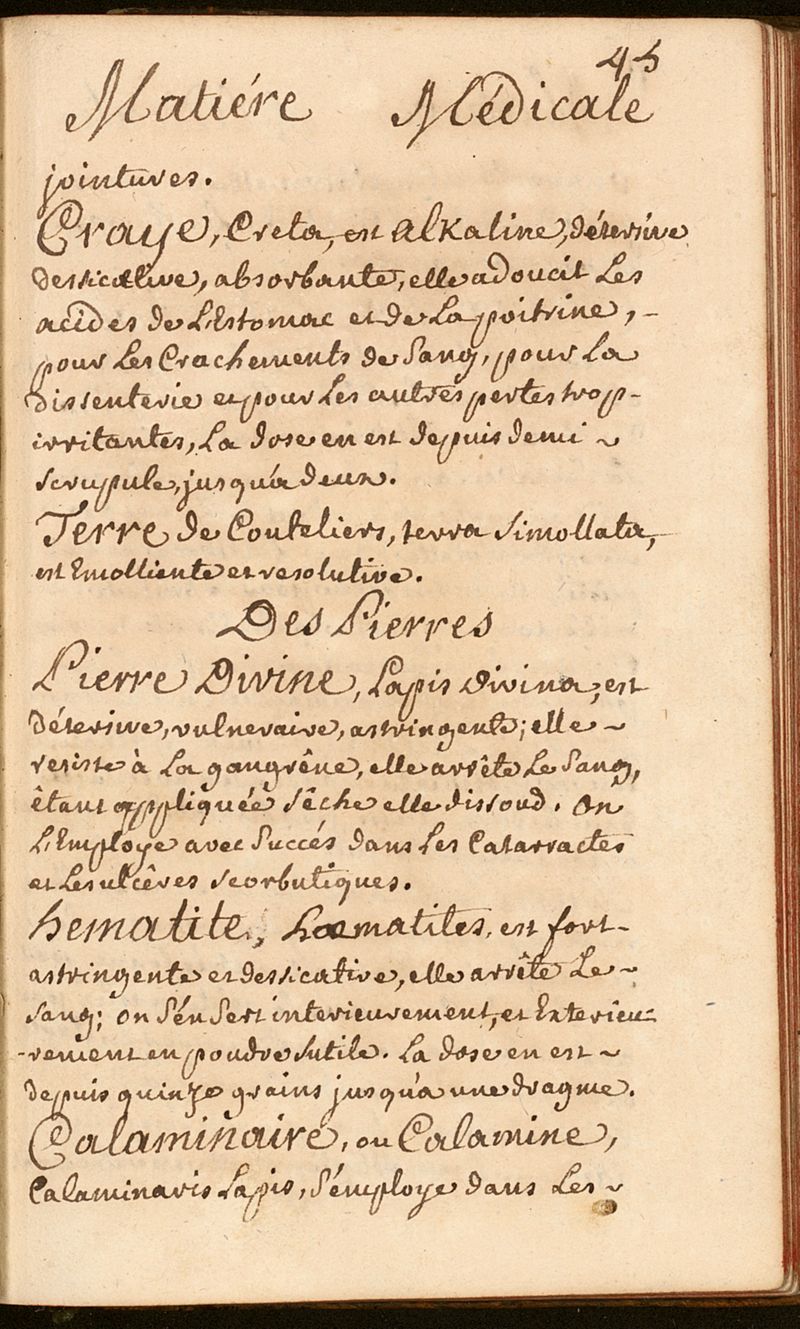 45
Matiére Médicale
jointures.
Craye, Creta, est alkaline, détersive
dessicative, absorbante, elle adoucit Les
acides de L'Estomac et de La poitrine, -
pour Les Crachements de Sang, pour La
dissenterie et pour Les autres pertes trop-
irritantes, La dose en est depuis demi ~
scrupule, jusqu'a deux.
Terre de Couteliers, terra Simollata,
est Emolliente et resolutive.
Des Pierres
Pierre Divine, Lapis divina, est
détersive, vulneraire, astringente; elle ~
resiste à La gangrêne, elle arrête Le Sang,
êtant appliquée sêche elle dissoud. On
L'Employe avec Succés dans Les Catarractes
et Les ulcêres scorbutiques.
hematite, hœmatites, est fort-
astringente et dessicative, elle arrête Le ~
sang; on S'én Sert interieurement, et Exterieu=
-rement en poudre subtile. La dose en est ~
depuis quinze grains jusqu'a une dragme.
Calaminaire, ou Calamine,
Calaminaris Lapis, S'employe dans Les ~